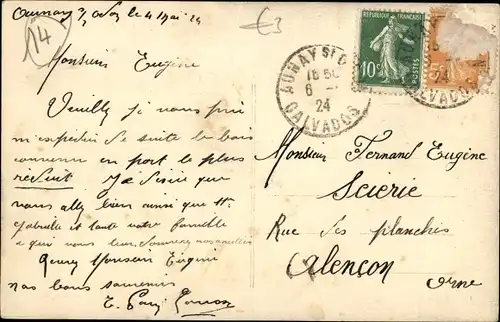 Aunay s/ Odon le 4 Mai 24
14
€3
Monsieur Eugène
Veuillez je vous prie
m'expédier de suite le bois
convenu en port le plus
réduit Je désire que
vous allez bien ainsi que
et toute votre famille
a qui vous
Monsieur Eugène
nos bons souvenirs
RÉPUBLIQUE FRANÇAISE
10c
POSTES
AUNAY St
18 50
6 -
24
CALVADOS
24
CALVADOS
Monsieur Fernand Eugène
Scierie
Rue des planches
Alençon
Orne